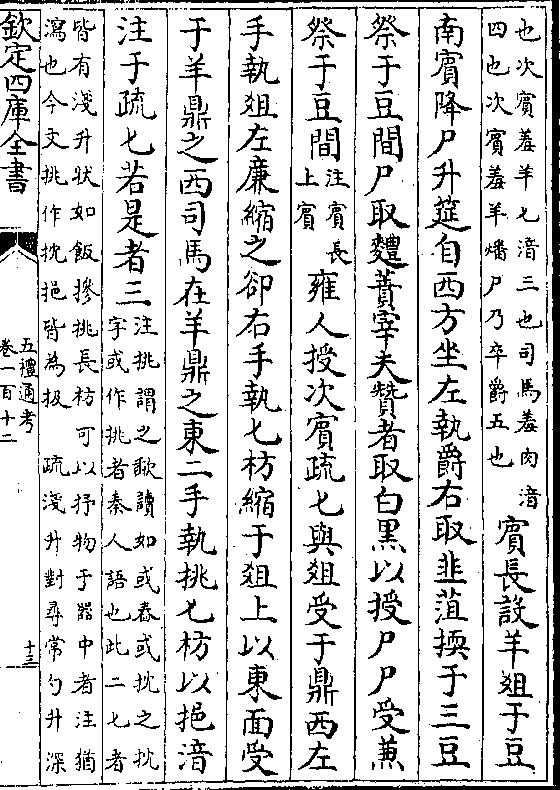 也次賓羞羊匕湆三也司馬羞肉湆
四也次賓羞羊燔尸乃卒爵五也
賓長設羊俎于豆
南賓降尸升筵自西方坐左執爵右取韭菹㨎于三豆
祭于豆間尸取麷蕡宰夫贊者取白黑以授尸尸受兼
祭于豆間
注賓長
上賓
雍人授次賓疏匕與俎受于鼎西左
手執俎左廉縮之卻右手執匕枋縮于俎上以東面受
于羊鼎之西司馬在羊鼎之東二手執挑匕枋以挹湆
注于疏匕若是者三
注挑謂之歃讀如或舂或抌之抌
字或作挑者秦人語也此二匕者
皆有淺升狀如飯摻挑長枋可以抒物于器中者注猶
瀉也今文挑作抌挹皆為扱 疏淺升對尋常勺升深
欽定四庫全書
五禮通考
卷一百十二
十三